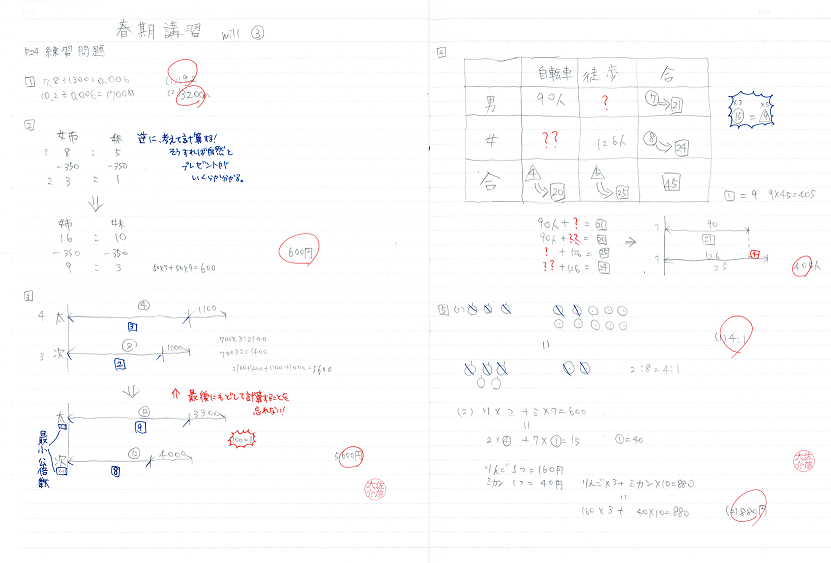 春期講習 will ③
P.24 練習問題
1 7.8÷1300=0.006 (1)
10.2÷0.006=1700 (2) 3200
2
姉 妹 逆に、考えて計算する!
3 8 : 5 そうすれば自然と
-350 -350 プレゼントが
2 3 : 1 いくらか分かる。
⇓
姉 妹
16 : 10
-350 -350 600円
9 : 3 50×3+50×9=600
3
4 太 ④ 1100
3
700×3=2100
3 次 ③ 1000 700×2=1400
2
2100+1400+1100+1000=5600
⇓ ↑ 最後にもどして計算することを
忘れない!
太 ⑫ 3300
9
100=1
最小公倍数
次 ⑫ 4000 5600円
8
4
自転車 徒歩 合
男 90人 ? ⑦→21
女 ?? 126人 ⑧→24
合 4→20 5→25 45
×3 ×5
⑮ = 4
1 = 9 9×45=405
90人+?=21
90人+??=20
?+126=25
??+126=24
→
? 90
21
? 126
25
4
405人
5 (1)
||
(1)4:1
2:8=4:1
(2) リ×2+ミ×7=600
||
2×④+7×①=15 ①=40
りんご1つ=160円
ミカン1つ=40円 りんご×3+ミカン×10=880
||
160×3+40×10=880 (2)880円